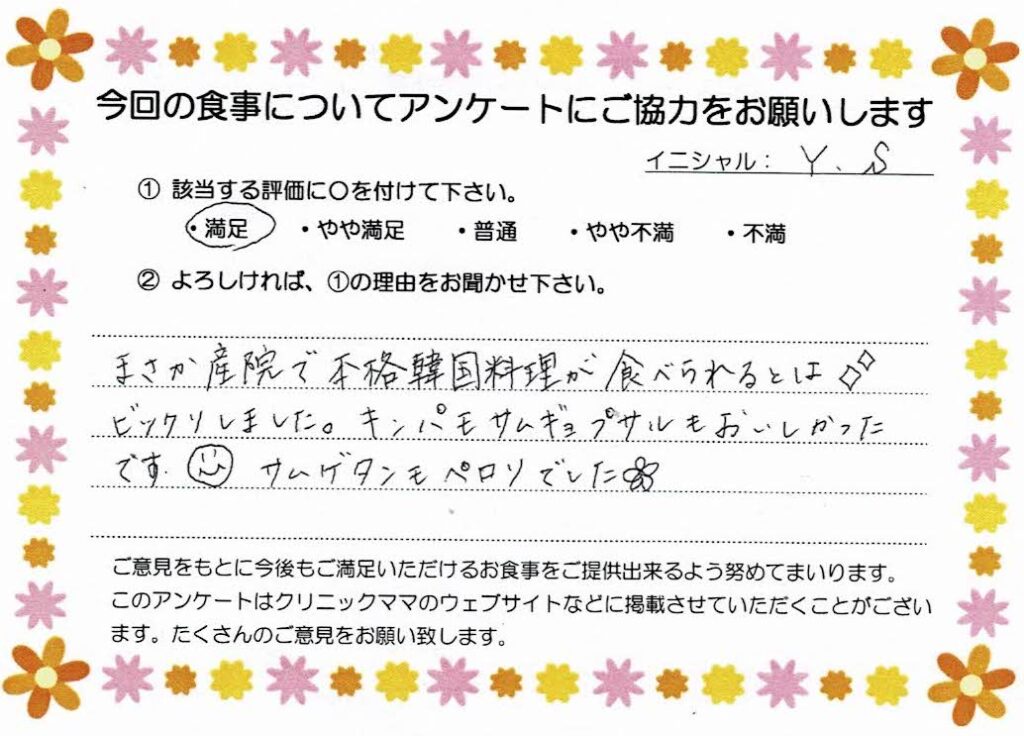 今回の食事についてアンケートにご協力をお願いします
イニシャル： Y．S
① 該当する評価に〇を付けて下さい。
・満足 ・やや満足 ・普通 ・やや不満 ・不満
② よろしければ、①の理由をお聞かせ下さい。
まさか産院で本格韓国料理が食べられるとは
ビックリしました。キンパもサムギョプサルもおいしかった
です サムゲタンもペロリでした
ご意見をもとに今後もご満足いただけるお食事をご提供出来るよう努めてまいります。
このアンケートはクリニックママのウェブサイトなどに掲載させていただくことがござい
ます。たくさんのご意見をお願い致します。